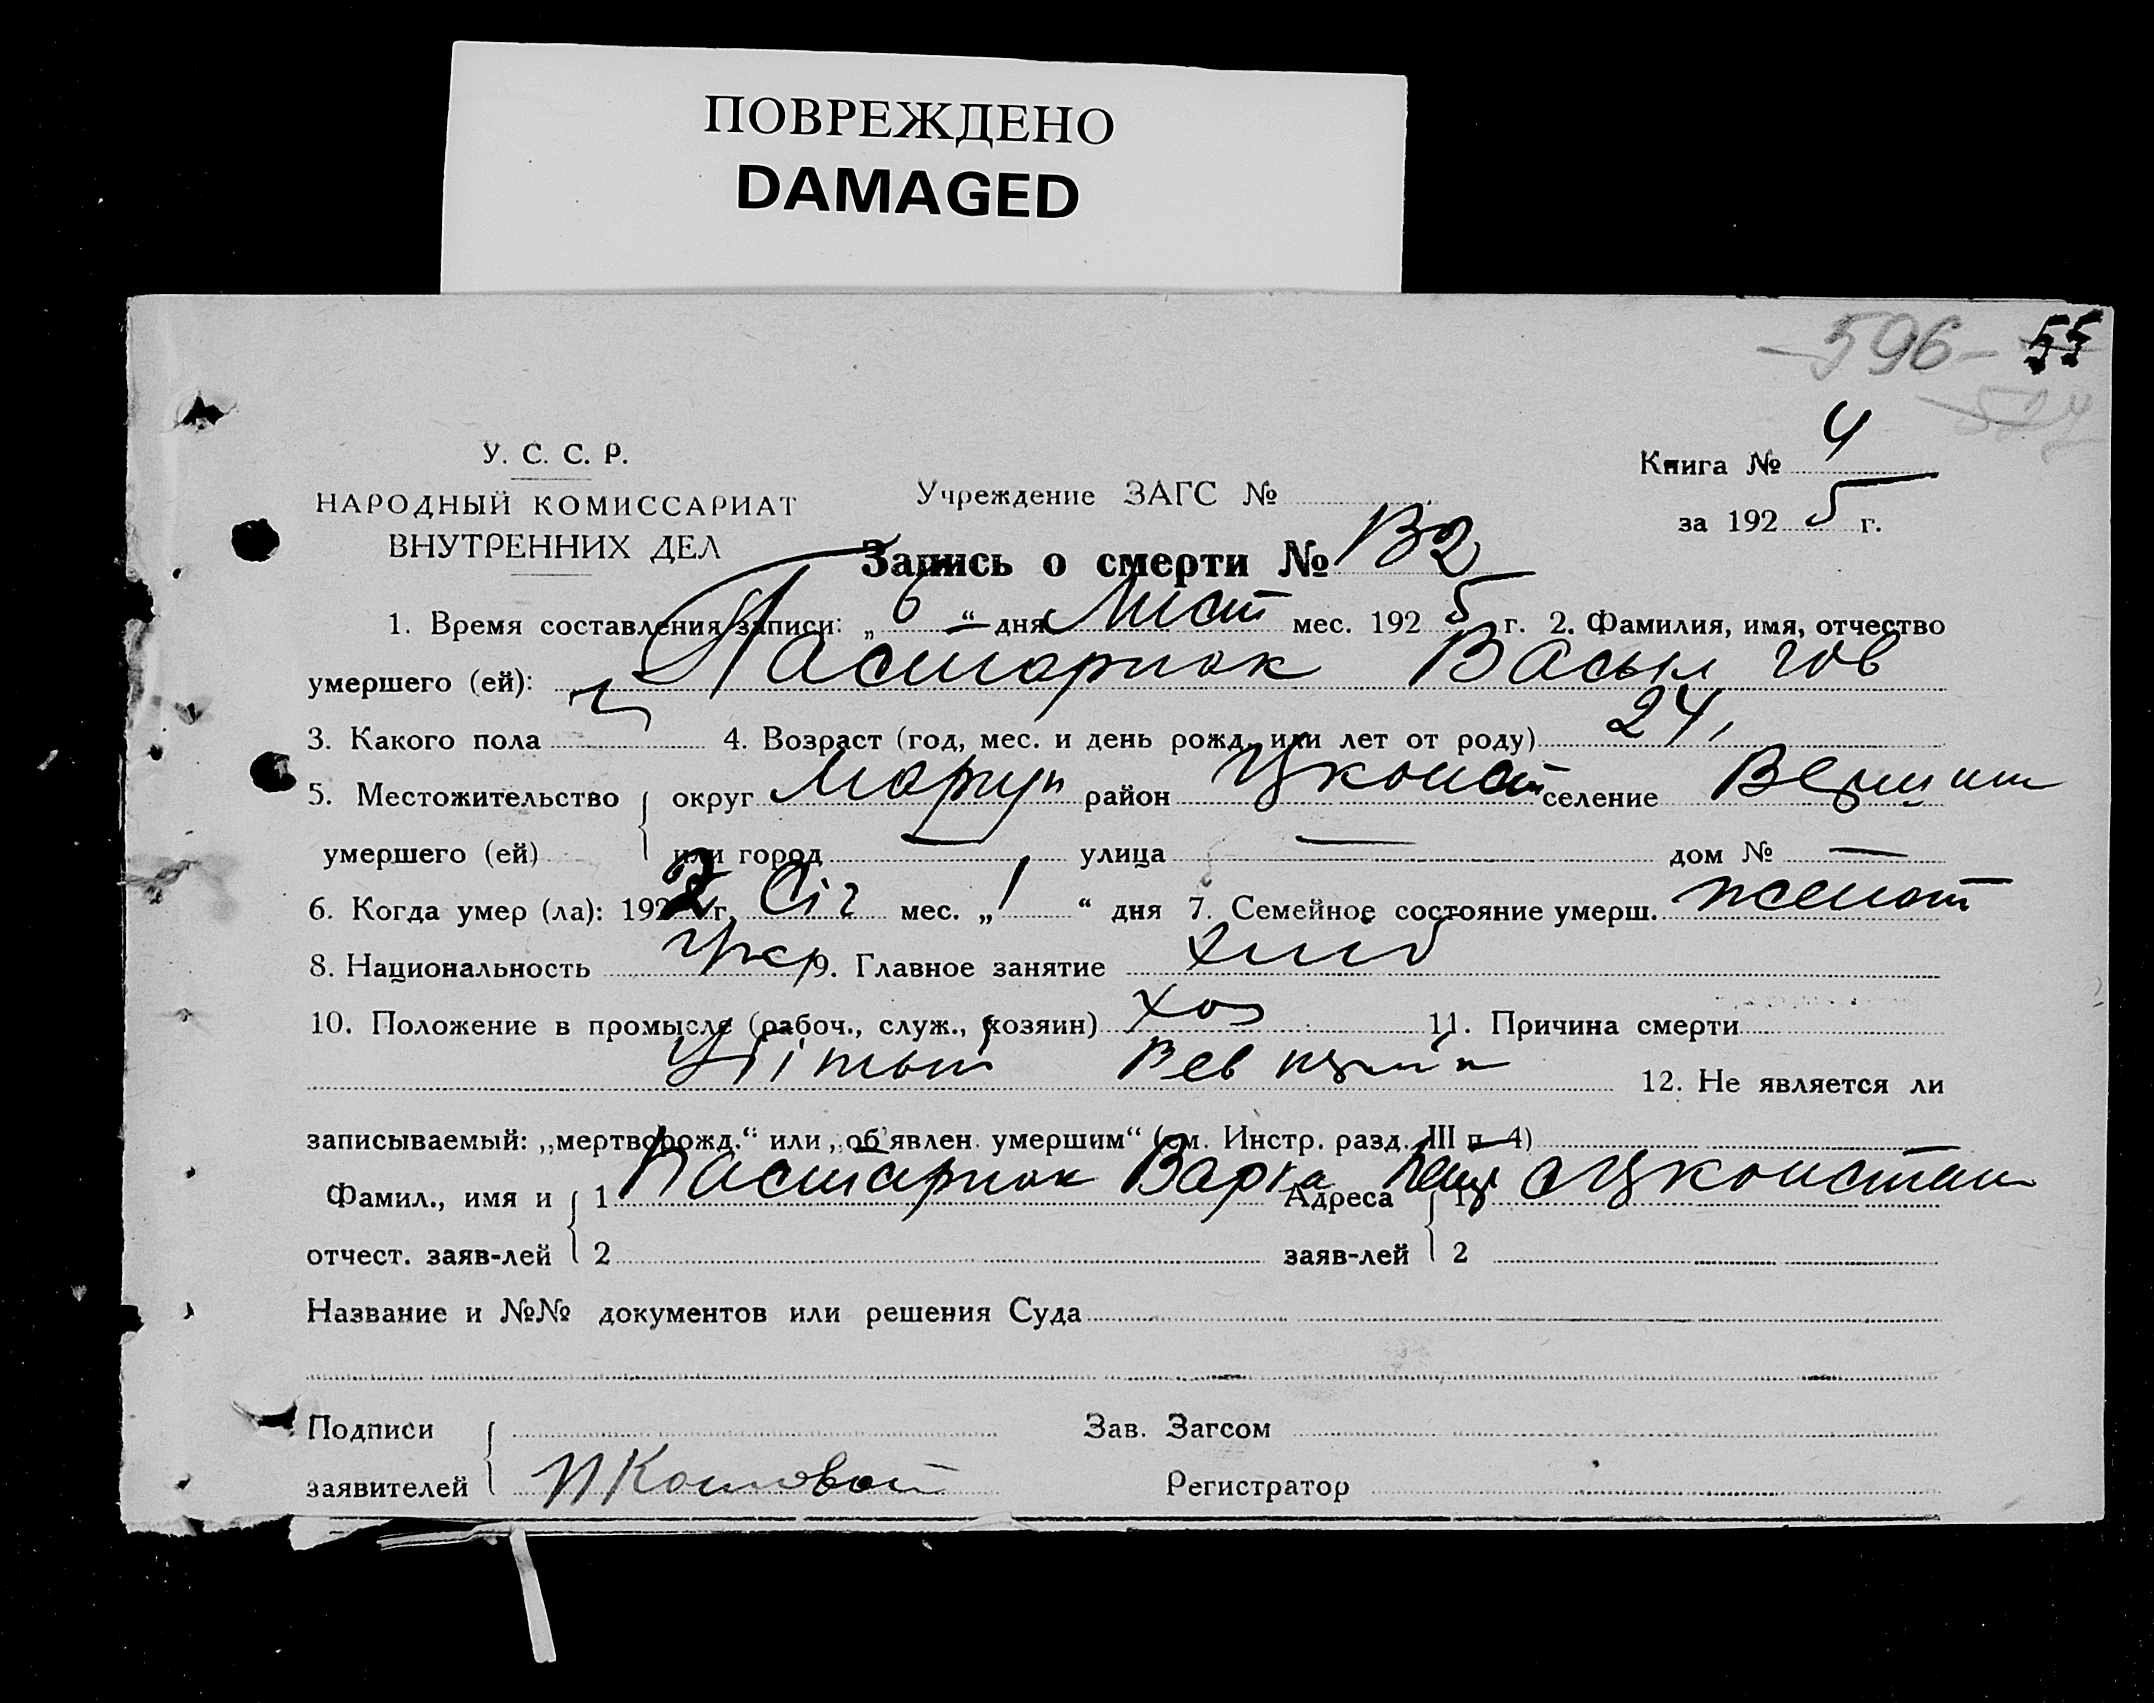 ПОВРЕЖДЕНО
DAMAGED
596 55
У. С. С. Р.
НАРОДНЫЙ КОМИССАРИАТ
ВНУТРЕННИХ ДЕЛ
Учреждение ЗАГС №
Книга № 4
за 1925 г.
Запись о смерти № В2
1. Время составления записи: „6“ дня Лист мес. 1925 г. 2. Фамилия, имя, отчество
умершего (ей): Пастарнак Васыл
3. Какого пола 4. Возраст (год, мес. и день рожд. или лет от роду) 24
5. Местожительство округ Мариуп район Цконст селение
умершего (ей) или город — улица — дом № —
6. Когда умер (ла): 192 г. Січ мес. „1“ дня 7. Семейное состояние умерш. женат
8. Национальность Укр 9. Главное занятие хліб
10. Положение в промысле (рабоч., служ., хозяин) хоз 11. Причина смерти
12. Не является ли
записываемый: „мертворожд.“ или „об'явлен. умершим“ (см. Инстр. разд. III п. 4)
Фамил., имя и 1 Пастарнак Варка Адреса 1 Цконстан
отчест. заяв-лей 2 заяв-лей 2
Название и №№ документов или решения Суда
Подписи Зав. Загсом
заявителей Регистратор